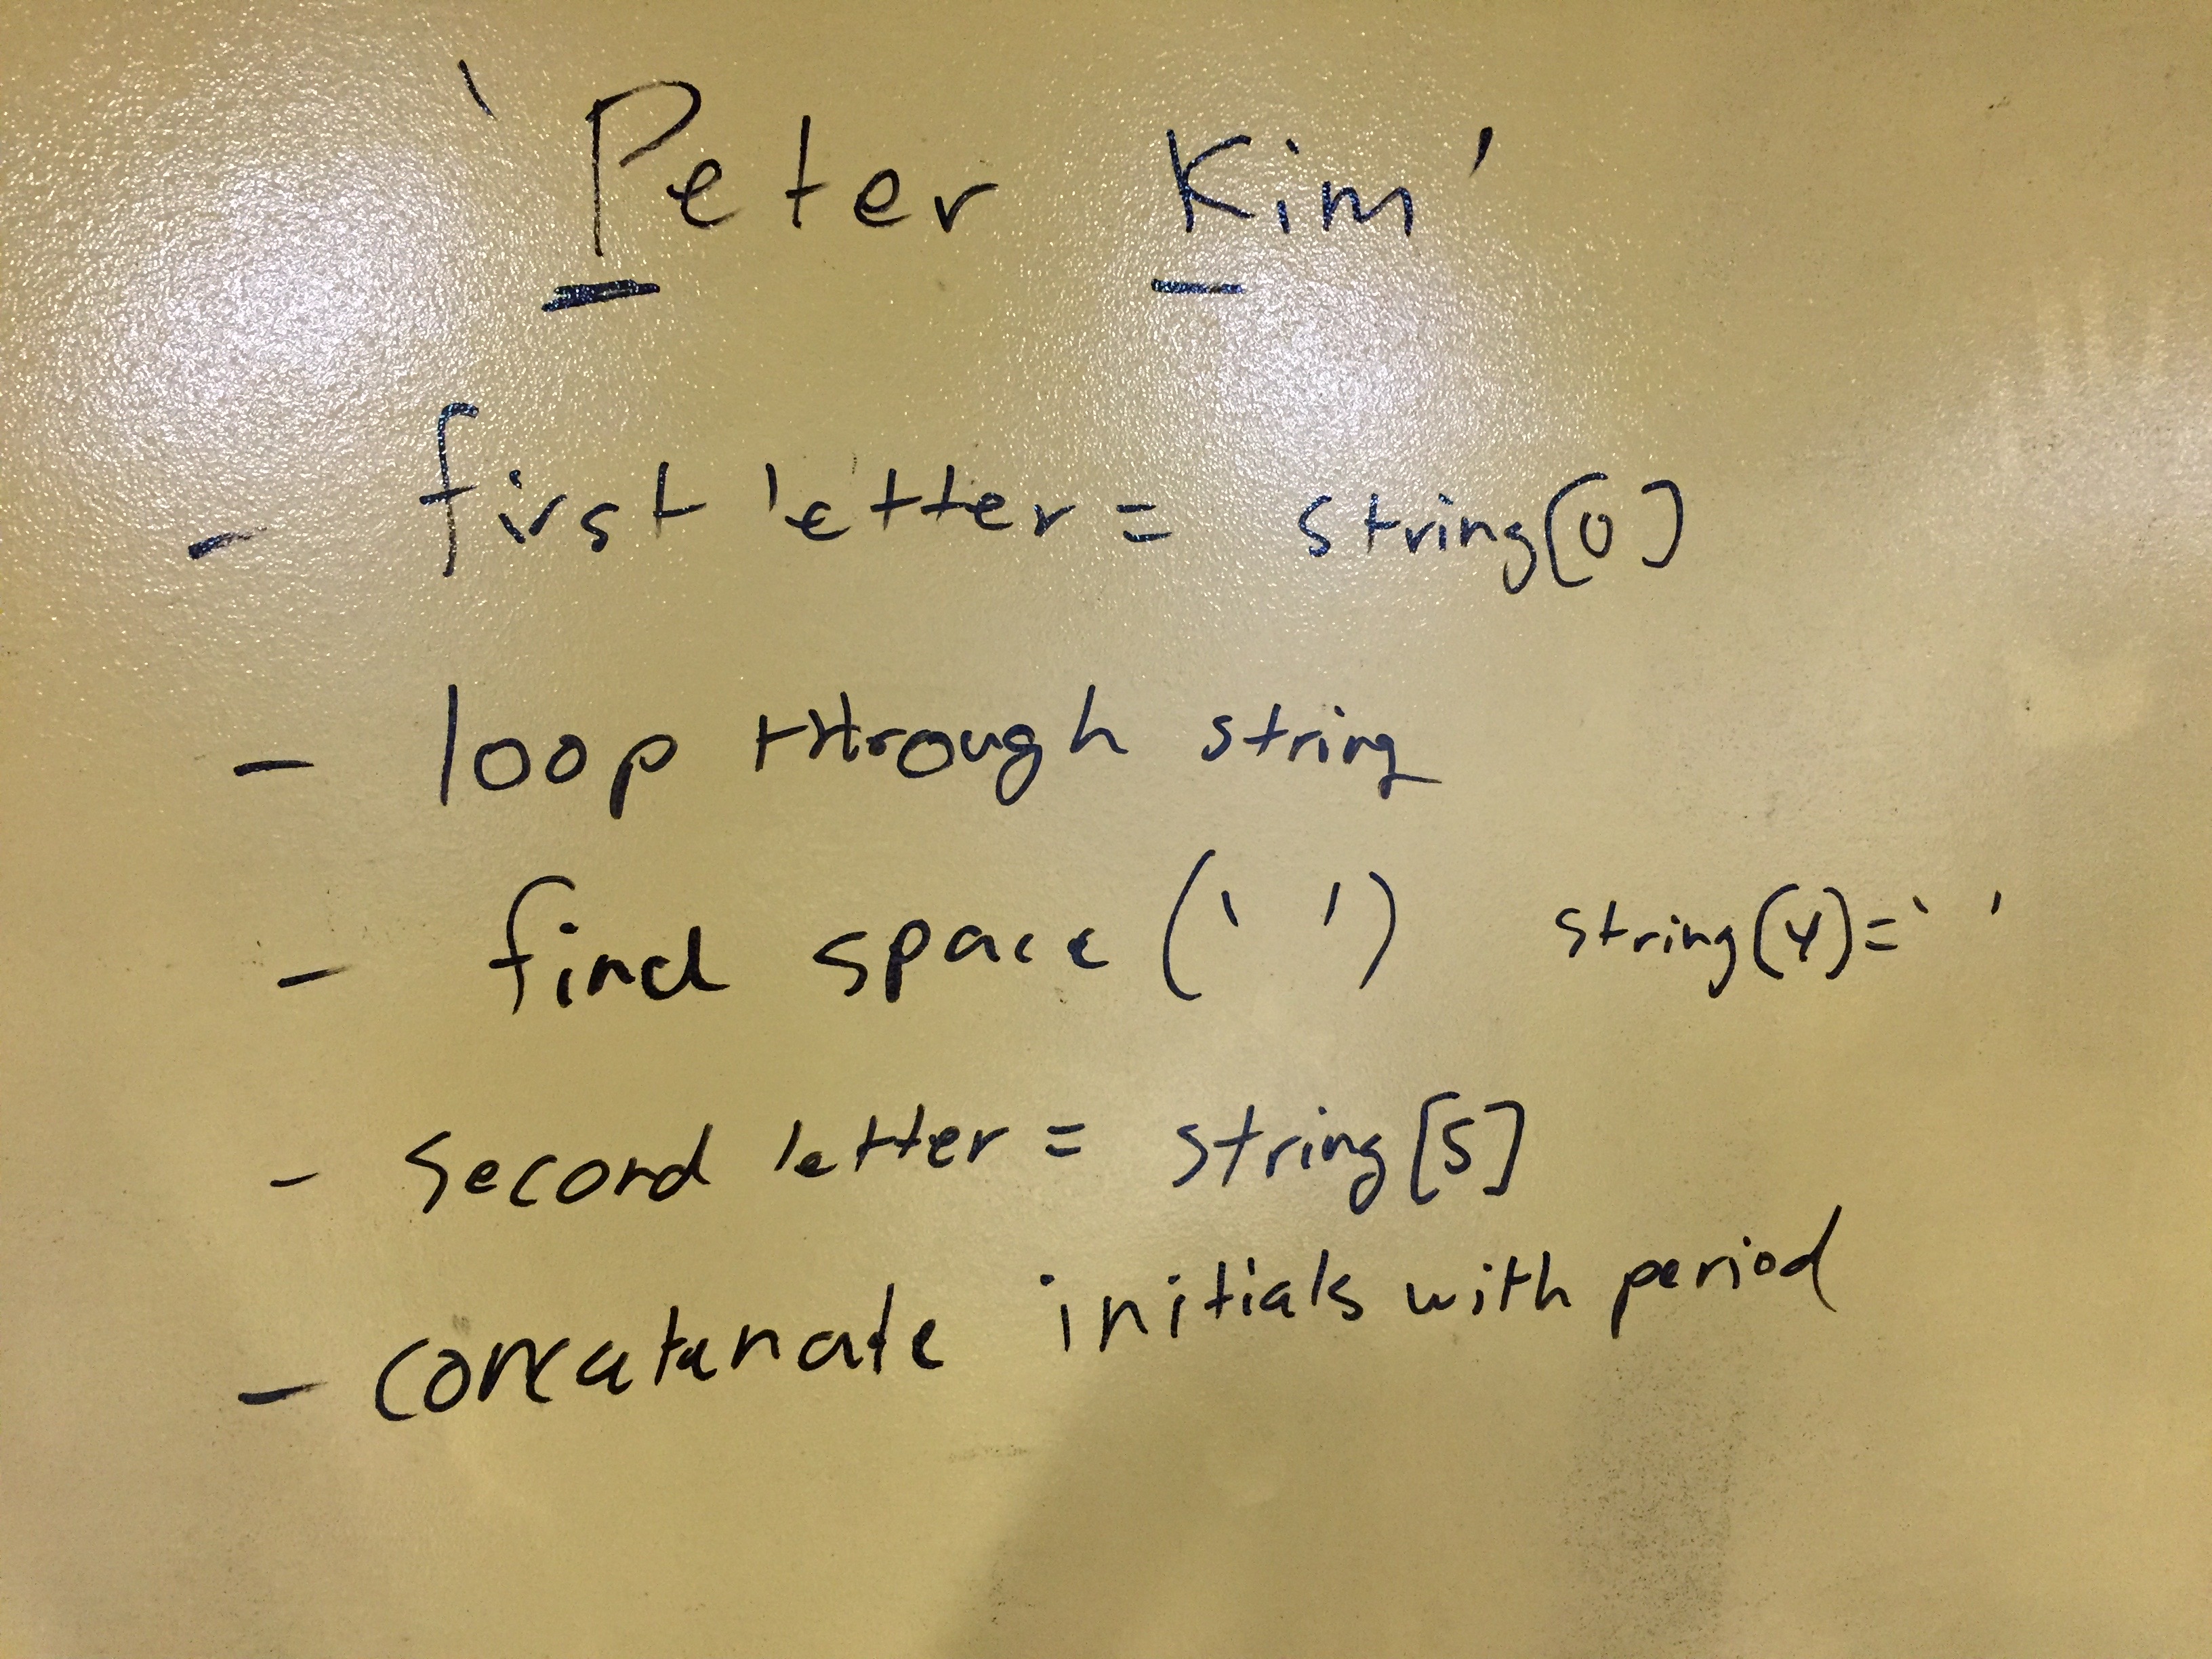 'Peter Kim'
- first letter = string[0]
- loop through string
- find space (' ') string(4)=' '
- second letter = string[5]
- concatenate initials with period